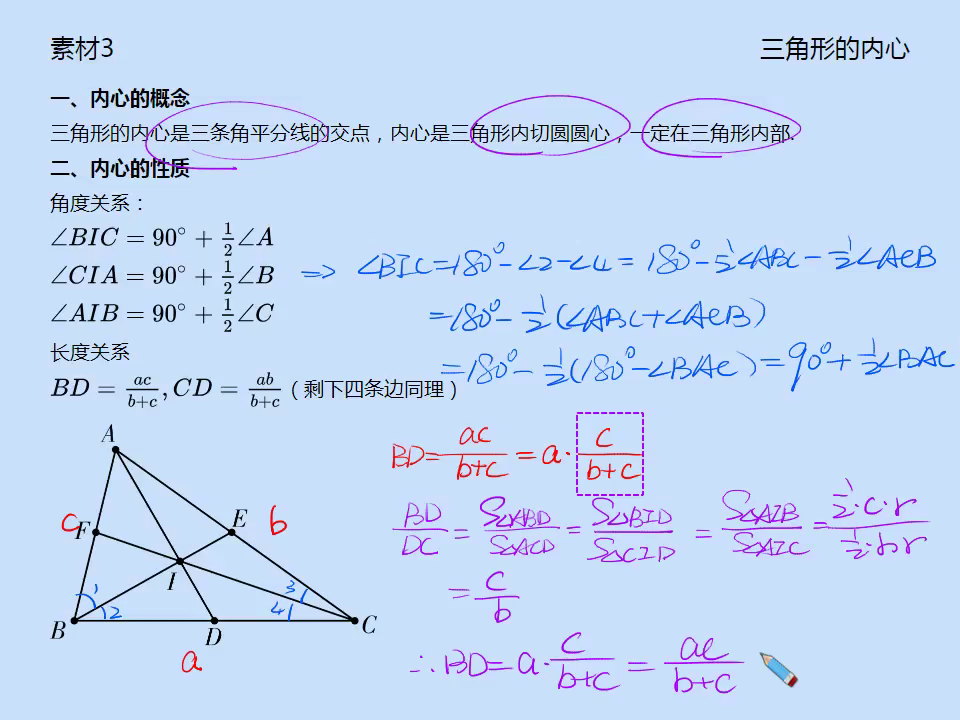 素材3
三角形的内心
一、内心的概念
三角形的内心是三条角平分线的交点，内心是三角形内切圆圆心，一定在三角形内部.
二、内心的性质
角度关系：
∠BIC = 90° + 1/2 ∠A
∠CIA = 90° + 1/2 ∠B
∠AIB = 90° + 1/2 ∠C
⇒ ∠BIC = 180° - ∠2 - ∠4 = 180° - 1/2 ∠ABC - 1/2 ∠ACB
= 180° - 1/2 (∠ABC + ∠ACB)
= 180° - 1/2 (180° - ∠BAC) = 90° + 1/2 ∠BAC
长度关系
BD = ac/(b+c), CD = ab/(b+c)（剩下四条边同理）
BD = ac/(b+c) = a · c/(b+c)
BD/DC = S△ABD/S△ACD = S△BID/S△CID = S△AIB/S△AIC = (1/2 · c · r)/(1/2 · b · r)
= c/b
∴ BD = a · c/(b+c) = ac/(b+c)
A
c F
E b
I
1
2
3
4
B
D
C
a